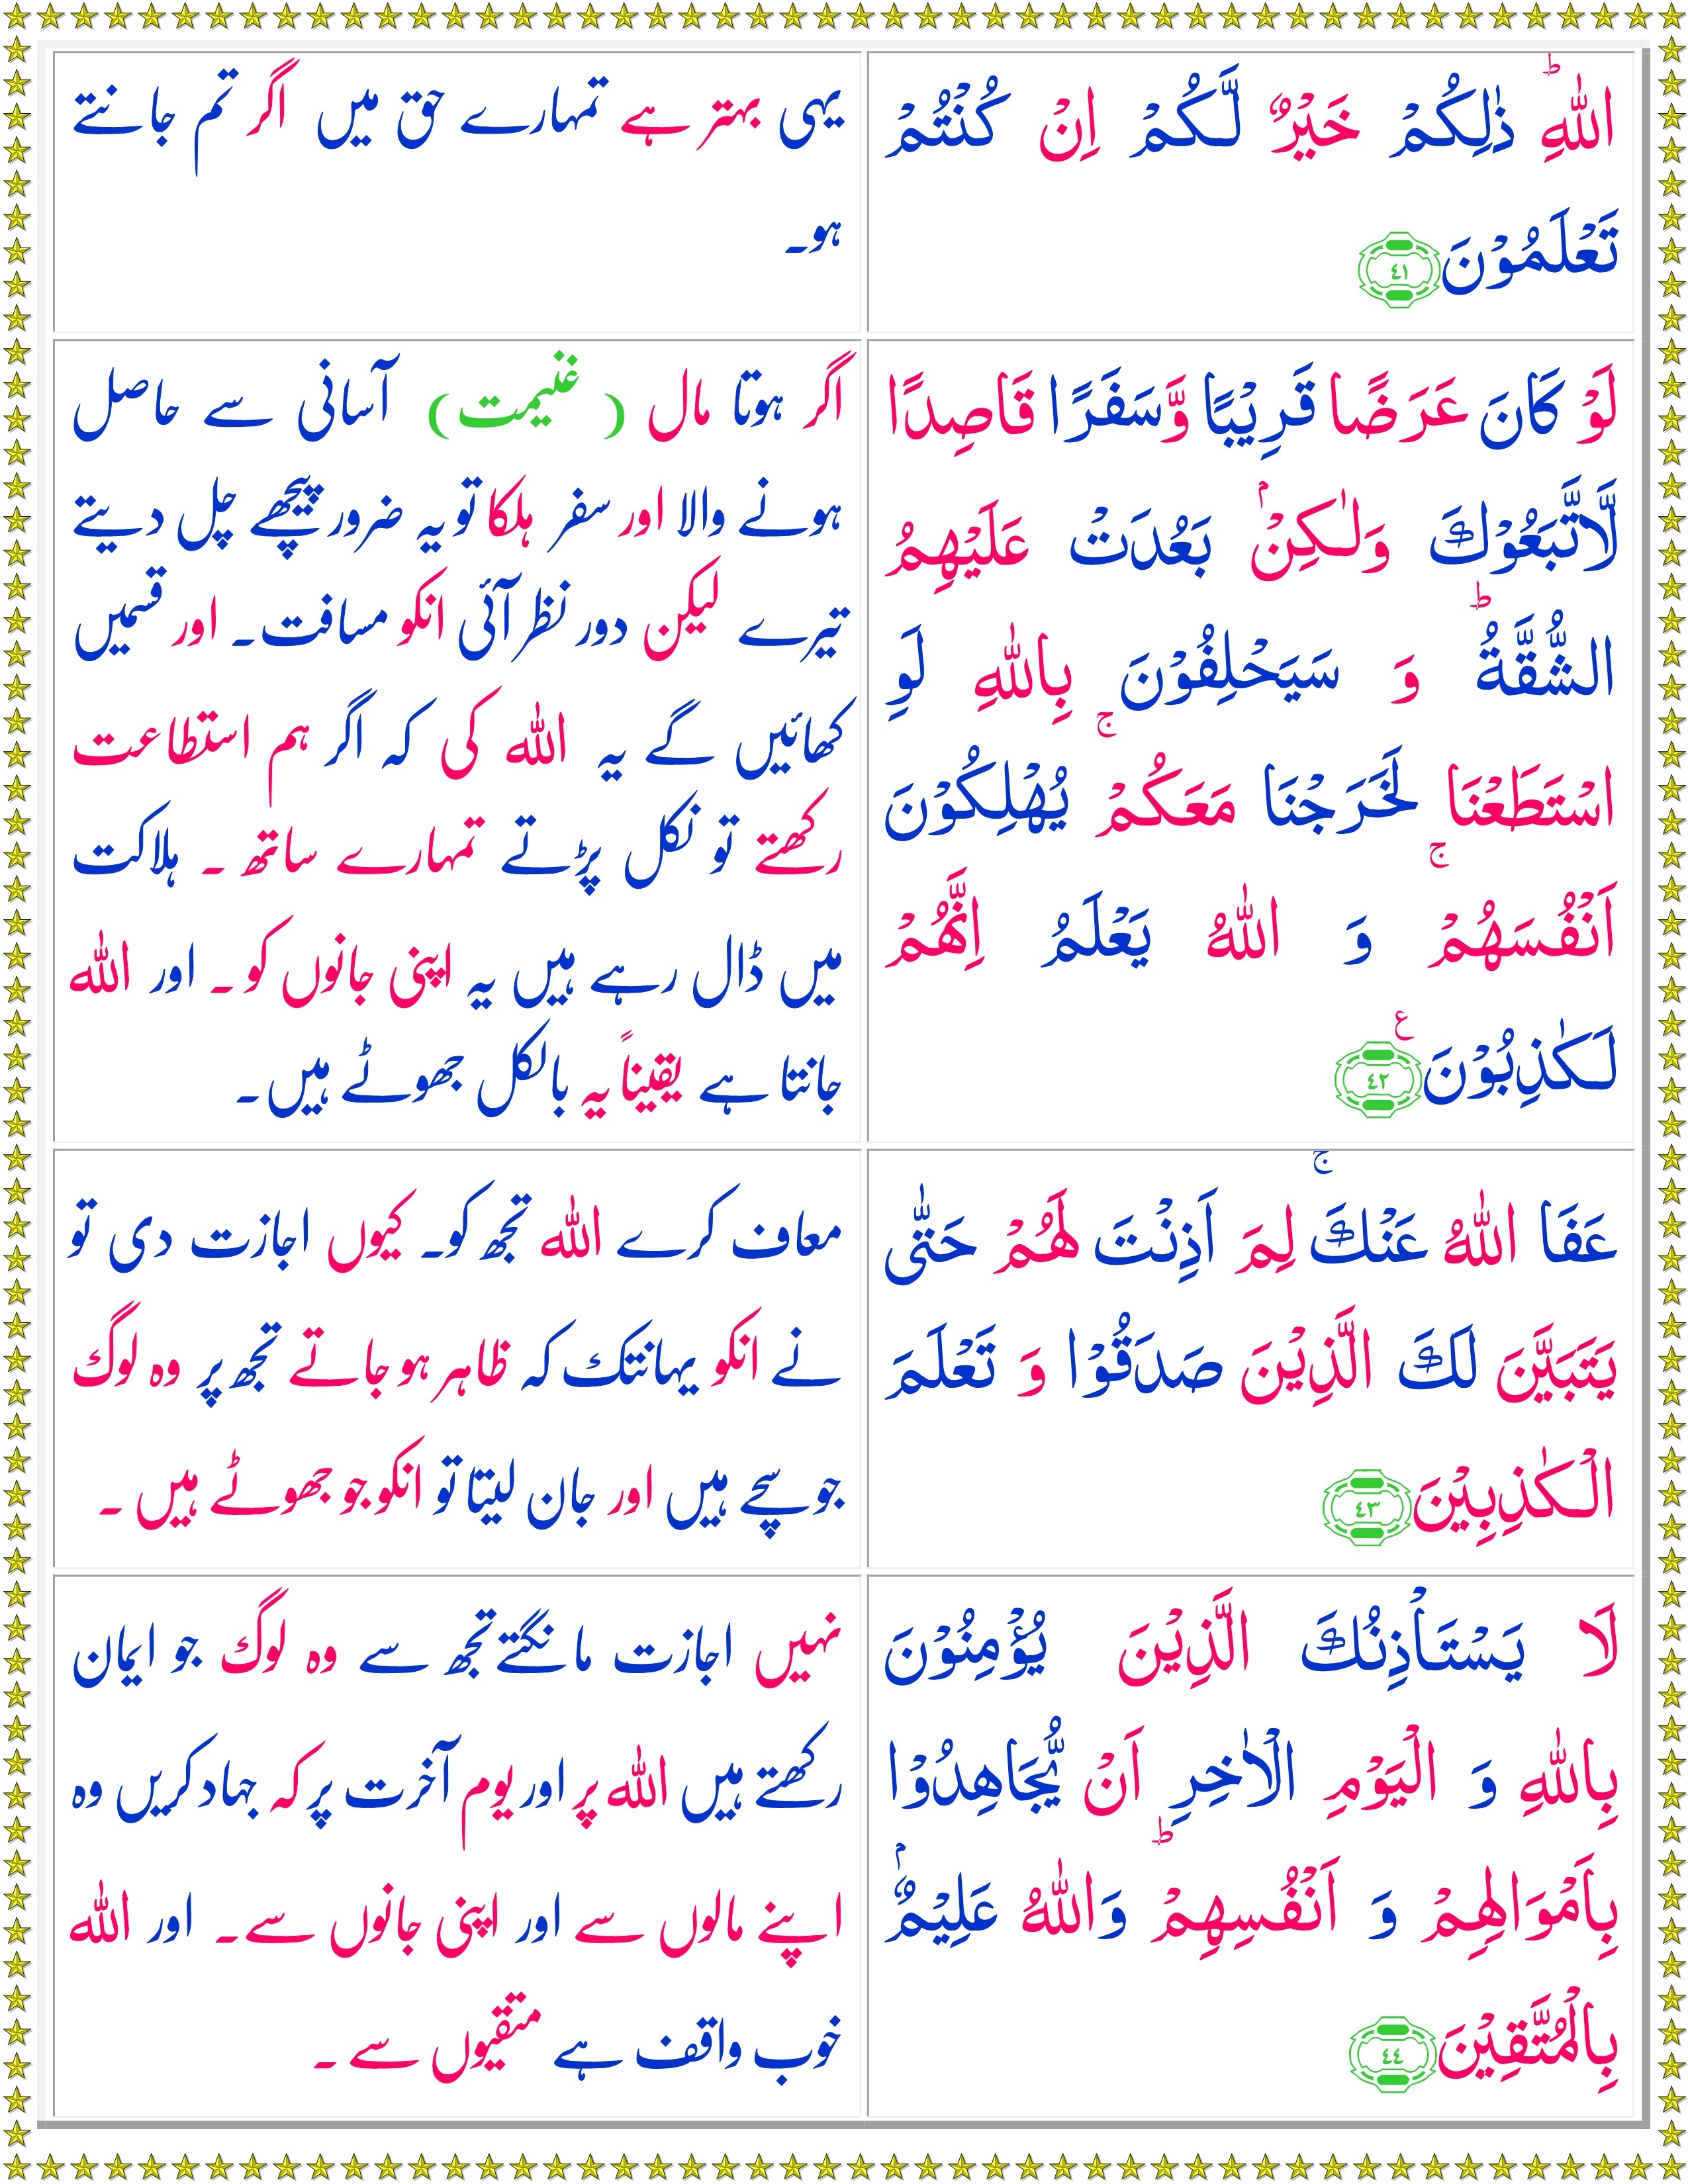 اللّٰهِ ؕ ذٰلِكُمْ خَیْرٌ لَّكُمْ اِنْ كُنْتُمْ
تَعْلَمُوْنَ ٤١
یہی بہتر ہے تمہارے حق میں اگر تم جانتے
ہو۔
لَوْ كَانَ عَرَضًا قَرِیْبًا وَّسَفَرًا قَاصِدًا
لَّاتَّبَعُوْكَ وَلٰكِنْۢ بَعُدَتْ عَلَیْهِمُ
الشُّقَّةُ ؕ وَ سَیَحْلِفُوْنَ بِاللّٰهِ لَوِ
اسْتَطَعْنَا لَخَرَجْنَا مَعَكُمْ ۚ یُهْلِكُوْنَ
اَنْفُسَهُمْ ۚ وَ اللّٰهُ یَعْلَمُ اِنَّهُمْ
لَكٰذِبُوْنَ ع ٤٢
اگر ہوتا مال (غنیمت) آسانی سے حاصل
ہونے والا اور سفر ہلکا تو یہ ضرور پیچھے چل دیتے
تیرے لیکن دور نظر آئی انکو مسافت۔ اور قسمیں
کھائیں گے یہ اللہ کی کہ اگر ہم استطاعت
رکھتے تو نکل پڑتے تمہارے ساتھ۔ ہلاکت
میں ڈال رہے ہیں یہ اپنی جانوں کو۔ اور اللہ
جانتا ہے یقیناً یہ بالکل جھوٹے ہیں۔
عَفَا اللّٰهُ عَنْكَ ۚ لِمَ اَذِنْتَ لَهُمْ حَتّٰی
یَتَبَیَّنَ لَكَ الَّذِیْنَ صَدَقُوْا وَ تَعْلَمَ
الْكٰذِبِیْنَ ٤٣
معاف کرے اللہ تجھ کو۔ کیوں اجازت دی تو
نے انکو یہانتک کہ ظاہر ہو جاتے تجھ پر وہ لوگ
جو سچے ہیں اور جان لیتا تو انکو جو جھوٹے ہیں۔
لَا یَسْتَاْذِنُكَ الَّذِیْنَ یُؤْمِنُوْنَ
بِاللّٰهِ وَ الْیَوْمِ الْاٰخِرِ اَنْ یُّجَاهِدُوْا
بِاَمْوَالِهِمْ وَ اَنْفُسِهِمْ ؕ وَاللّٰهُ عَلِیْمٌۢ
بِالْمُتَّقِیْنَ ٤٤
نہیں اجازت مانگتے تجھ سے وہ لوگ جو ایمان
رکھتے ہیں اللہ پر اور یوم آخرت پر کہ جہاد کریں وہ
اپنے مالوں سے اور اپنی جانوں سے۔ اور اللہ
خوب واقف ہے متقیوں سے۔